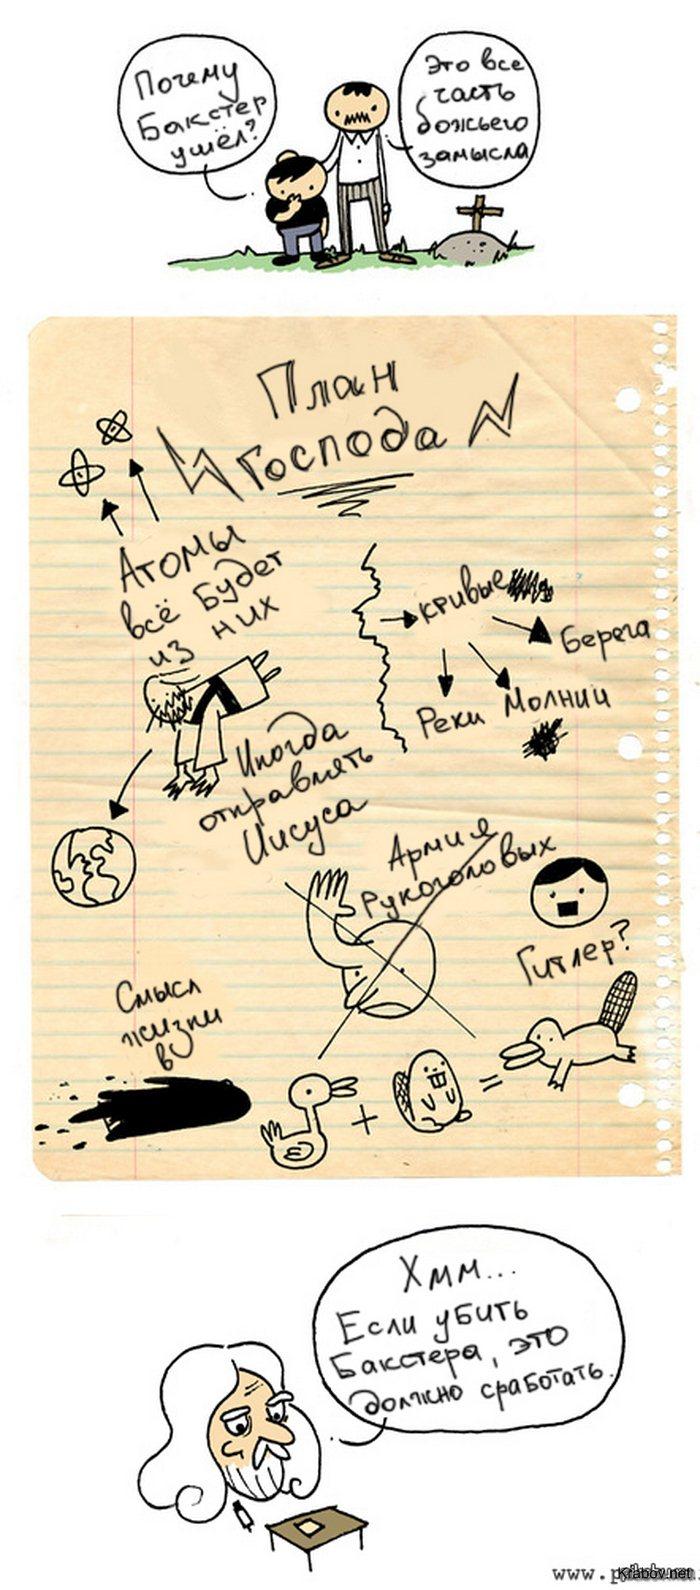 Почему
Бакстер
ушёл?
Это все
часть
божьего
замысла
План
Господа
Атомы
всё будет
из них
кривые
Берега
Реки
Молнии
Иногда
отправлять
Иисуса
Армия
Рукоголовых
Гитлер?
Смысл
жизни
в
+
=
Хмм...
Если убить
Бакстера, это
должно сработать.
Krabov.net